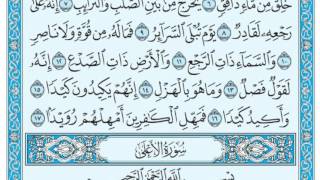 خُلِقَ مِن مَّاءٍ دَافِقٍ ٦ يَخْرُجُ مِن بَيْنِ الصُّلْبِ وَالتَّرَائِبِ ٧ إِنَّهُ عَلَىٰ
رَجْعِهِ لَقَادِرٌ ٨ يَوْمَ تُبْلَى السَّرَائِرُ ٩ فَمَا لَهُ مِن قُوَّةٍ وَلَا نَاصِرٍ
١٠ وَالسَّمَاءِ ذَاتِ الرَّجْعِ ١١ وَالْأَرْضِ ذَاتِ الصَّدْعِ ١٢ إِنَّهُ
لَقَوْلٌ فَصْلٌ ١٣ وَمَا هُوَ بِالْهَزْلِ ١٤ إِنَّهُمْ يَكِيدُونَ كَيْدًا ١٥
وَأَكِيدُ كَيْدًا ١٦ فَمَهِّلِ الْكَافِرِينَ أَمْهِلْهُمْ رُوَيْدًا ١٧
سُورَةُ الْأَعْلَىٰ
بِسْمِ اللَّهِ الرَّحْمَٰنِ الرَّحِيمِ